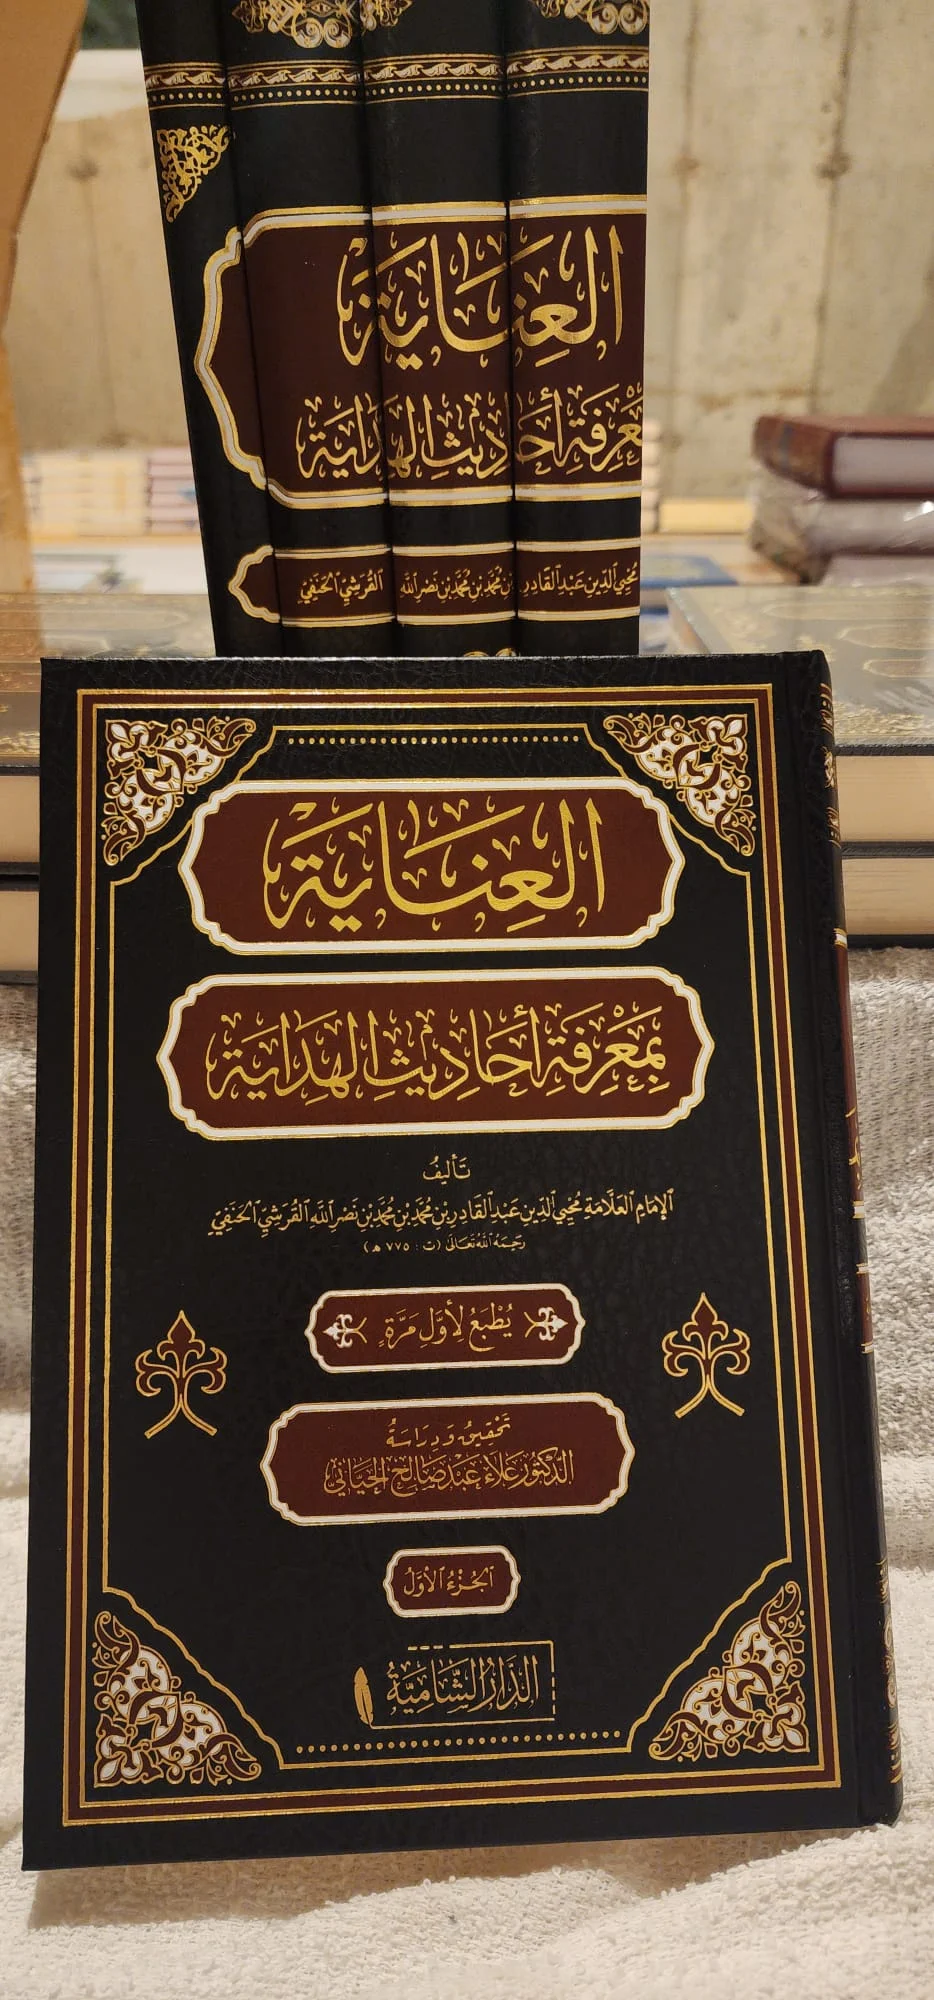 العِنَايَةُ
بِمَعْرِفَةِ أَحَادِيثِ الهِدَايَةِ
مُحْيِي الدِّينِ عَبْدِ القَادِرِ بْنِ مُحَمَّدِ بْنِ مُحَمَّدِ بْنِ نَصْرِ اللَّهِ القُرَشِيِّ الحَنَفِيِّ
العِنَايَةُ
بِمَعْرِفَةِ أَحَادِيثِ الهِدَايَةِ
تَأْلِيفُ
الإِمَامِ العَلَّامَةِ مُحْيِي الدِّينِ عَبْدِ القَادِرِ بْنِ مُحَمَّدِ بْنِ مُحَمَّدِ بْنِ نَصْرِ اللَّهِ القُرَشِيِّ الحَنَفِيِّ
رَحِمَهُ اللَّهُ تَعَالَى (ت : ٧٧٥ هـ)
يُطْبَعُ لِأَوَّلِ مَرَّةٍ
تَحْقِيقُ وَدِرَاسَةُ
الدُّكْتُور عَلَاء عَبْد صَالِح الحَيَانِي
الجُزْءُ الأَوَّلُ
الدَّارُ الشَّامِيَّةُ